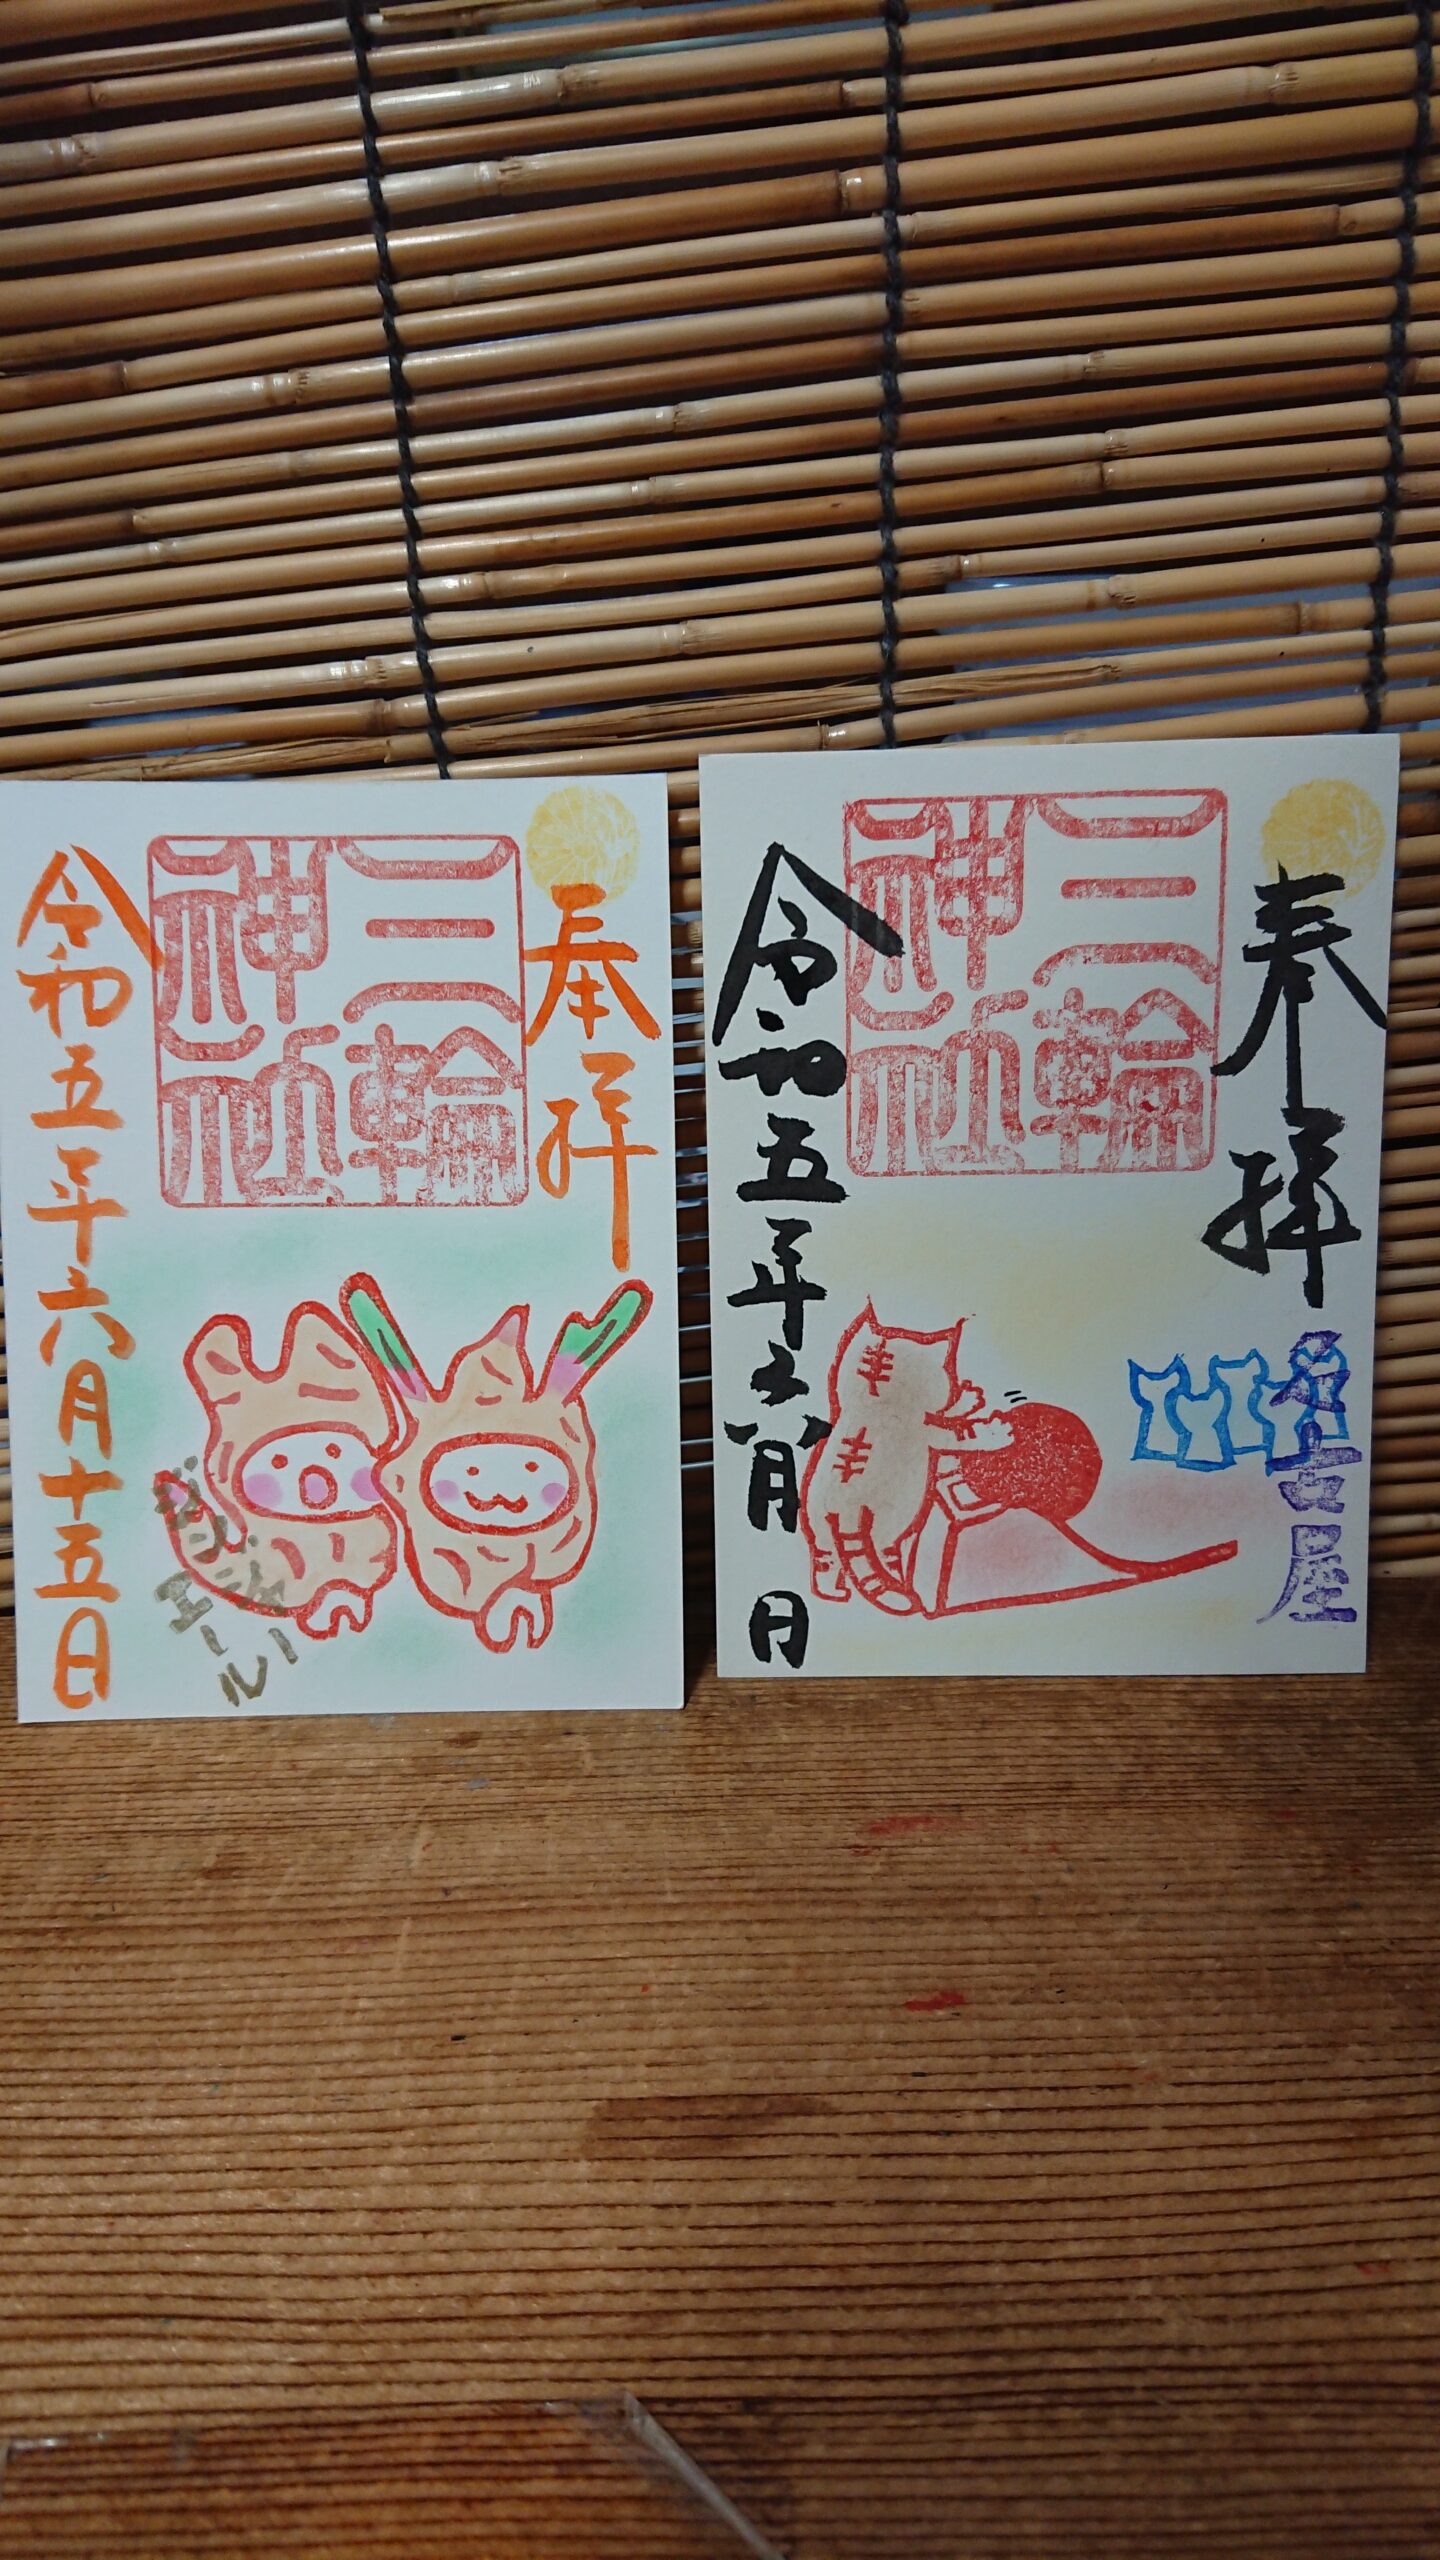 奉拝
三輪
神社
令和五年六月十五日
ジンジャー
エール
奉拝
三輪
神社
名古屋
令和五年六月 日